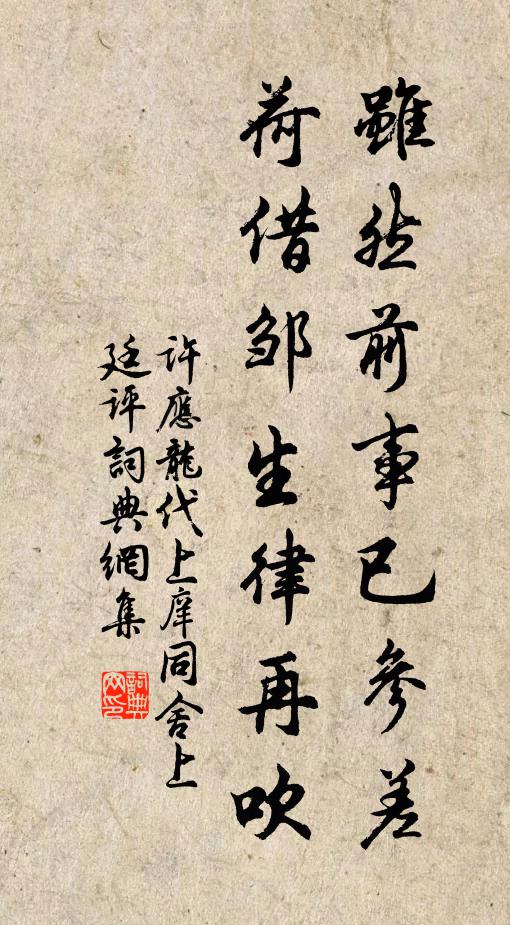 雖然前事已參差
荷借邹生律再吹
許應龍代上庠同舍上
廷評詞典網集
詞典网印